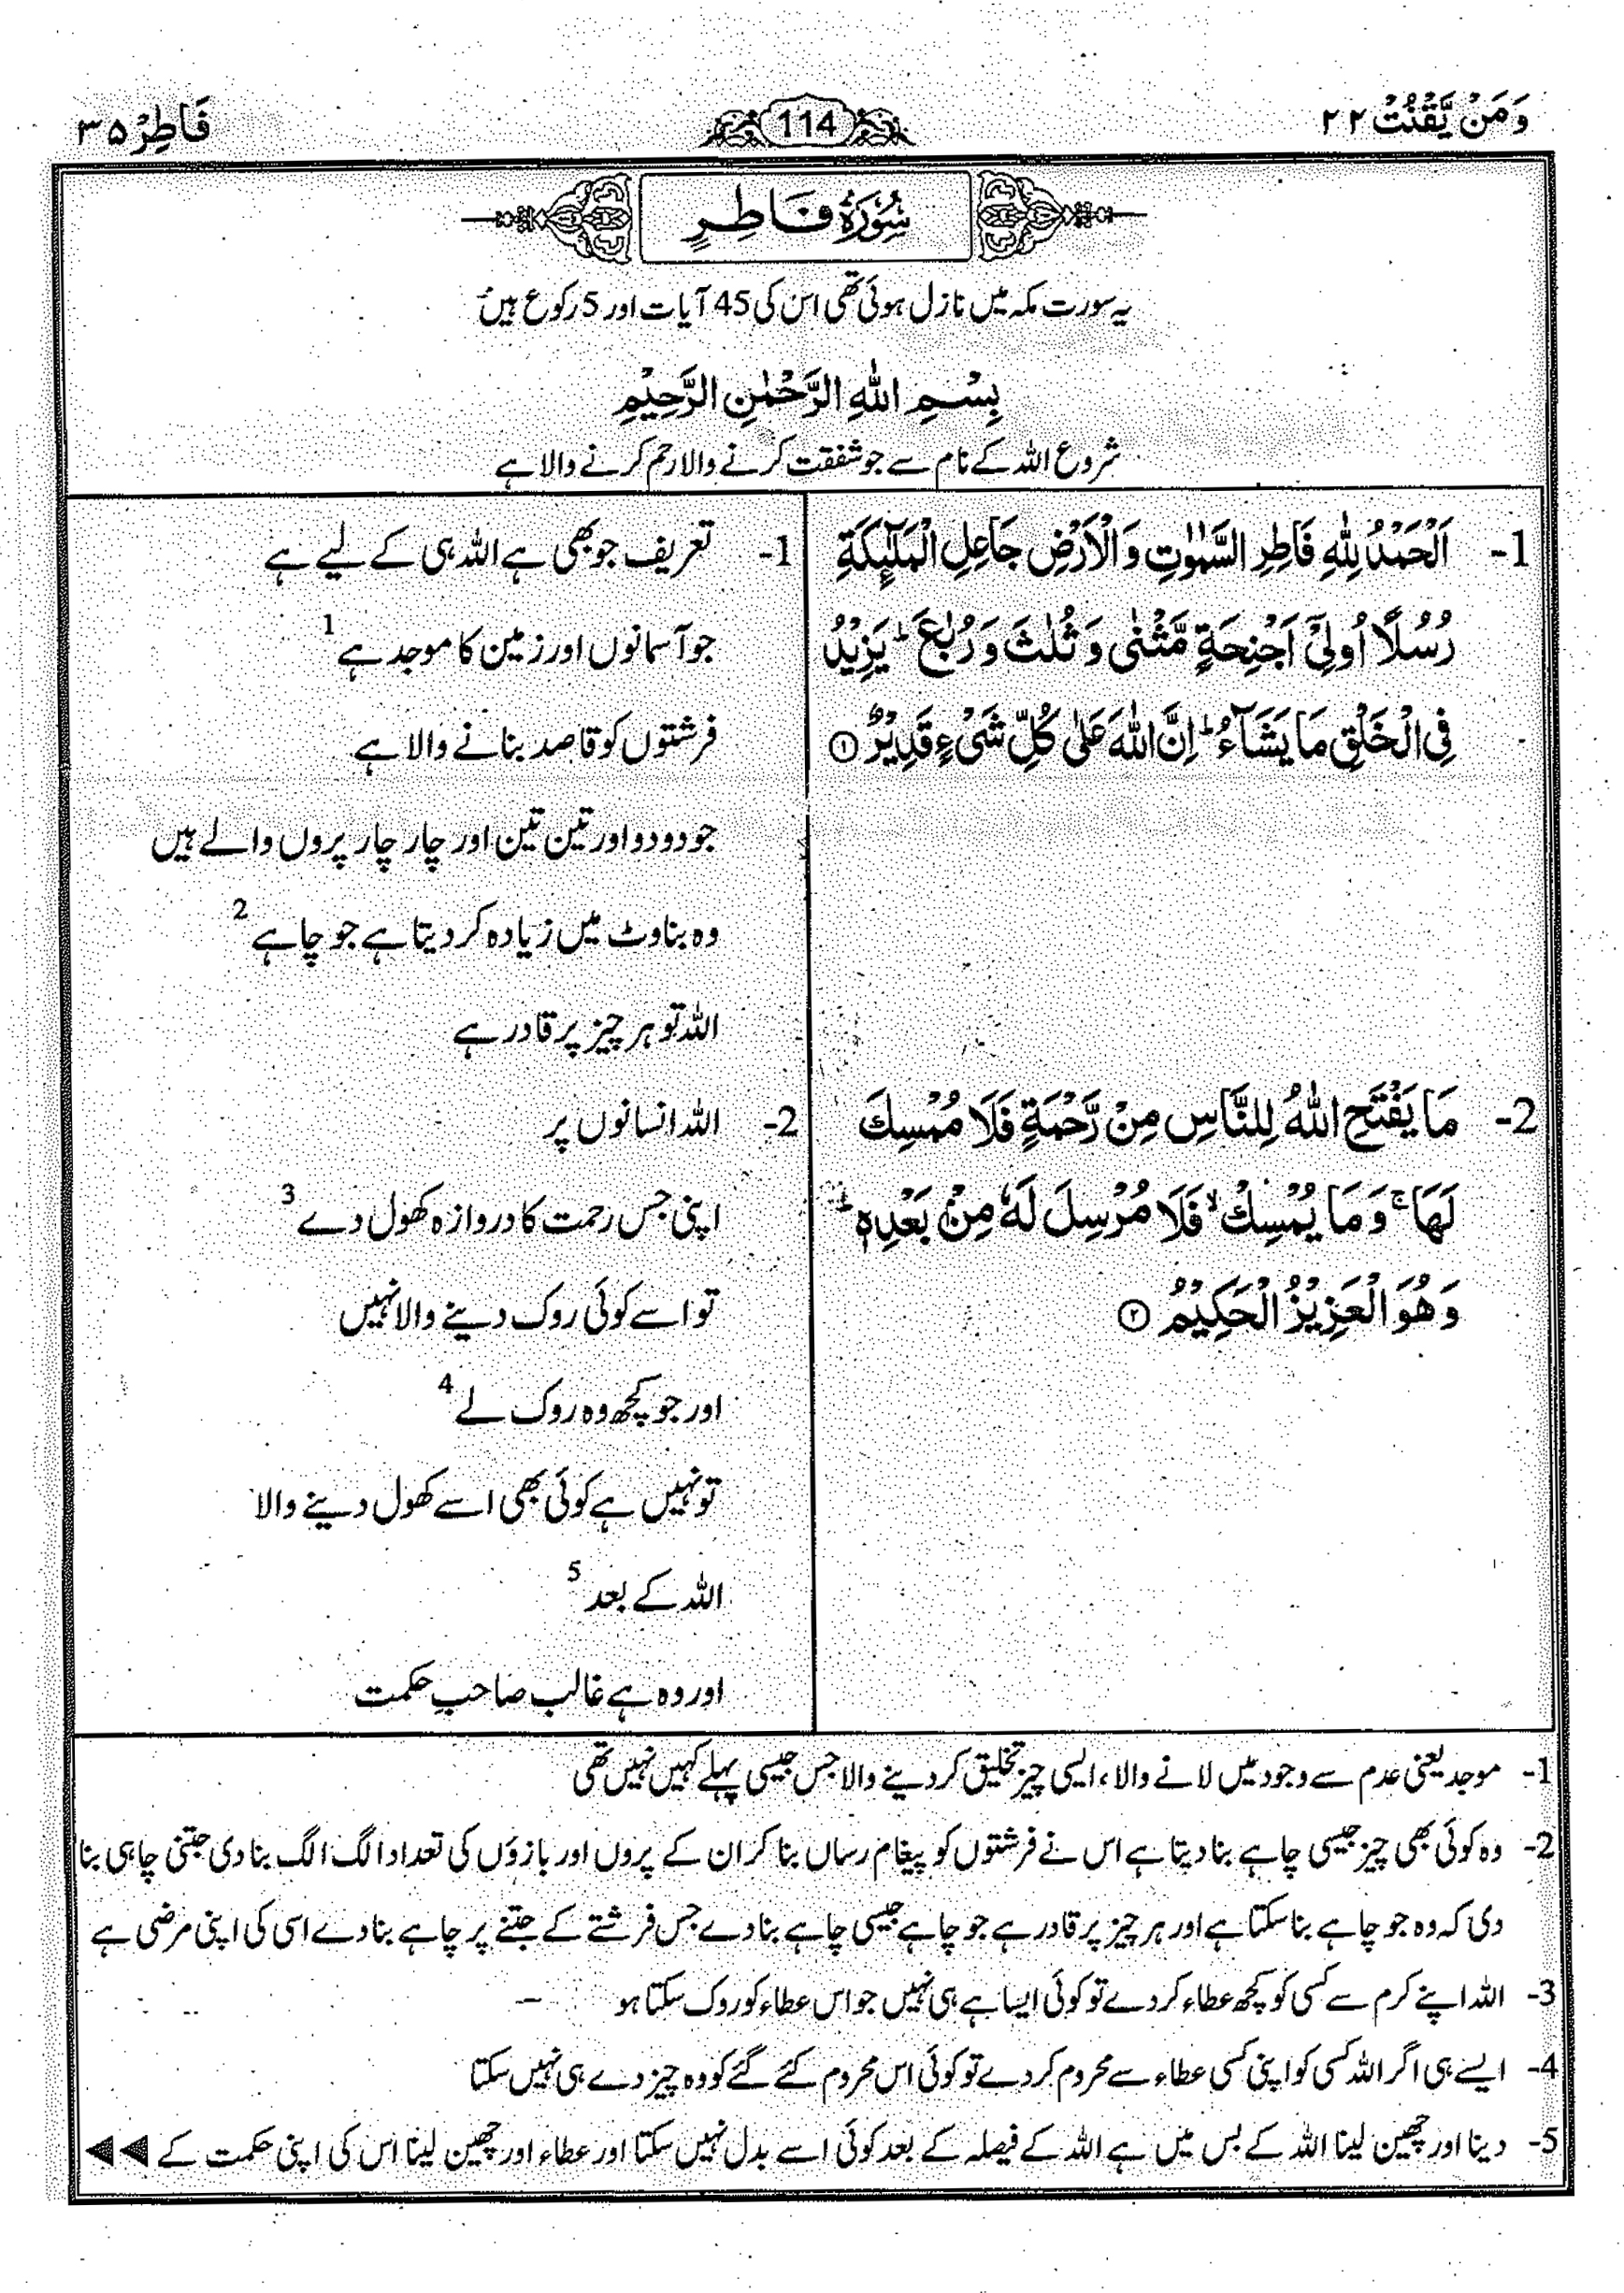 وَمَنْ يَّقْنُتْ ٢٢
114
فَاطِرْ ٣٥
سُوْرَةُ فَاطِرٍ
یہ سورت مکہ میں نازل ہوئی تھی اس کی 45 آیات اور 5 رکوع ہیں
بِسْمِ اللّٰهِ الرَّحْمٰنِ الرَّحِيْمِ
شروع اللہ کے نام سے جو شفقت کرنے والا رحم کرنے والا ہے
1- اَلْحَمْدُ لِلّٰهِ فَاطِرِ السَّمٰوٰتِ وَالْاَرْضِ جَاعِلِ الْمَلٰٓئِكَةِ
رُسُلًا اُولِيْٓ اَجْنِحَةٍ مَّثْنٰى وَثُلٰثَ وَرُبٰعَ ؕ يَزِيْدُ
فِى الْخَلْقِ مَا يَشَآءُ ؕ اِنَّ اللّٰهَ عَلٰى كُلِّ شَىْءٍ قَدِيْرٌ ①
2- مَا يَفْتَحِ اللّٰهُ لِلنَّاسِ مِنْ رَّحْمَةٍ فَلَا مُمْسِكَ
لَهَا ۚ وَمَا يُمْسِكْ ۙ فَلَا مُرْسِلَ لَهٗ مِنْۢ بَعْدِهٖ ؕ
وَهُوَ الْعَزِيْزُ الْحَكِيْمُ ②
1- تعریف جو بھی ہے اللہ ہی کے لیے ہے
جو آسمانوں اور زمین کا موجد ہے 1
فرشتوں کو قاصد بنانے والا ہے
جو دو دو اور تین تین اور چار چار پروں والے ہیں
وہ بناوٹ میں زیادہ کر دیتا ہے جو چاہے 2
اللہ تو ہر چیز پر قادر ہے
2- اللہ انسانوں پر
اپنی جس رحمت کا دروازہ کھول دے 3
تو اسے کوئی روک دینے والا نہیں
اور جو کچھ وہ روک لے 4
تو نہیں ہے کوئی بھی اسے کھول دینے والا
اللہ کے بعد 5
اور وہ ہے غالب صاحبِ حکمت
1- موجد یعنی عدم سے وجود میں لانے والا، ایسی چیز تخلیق کر دینے والا جس جیسی پہلے کہیں نہیں تھی
2- وہ کوئی بھی چیز جیسی چاہے بنا دیتا ہے اس نے فرشتوں کو پیغام رساں بنا کر ان کے پروں اور بازوؤں کی تعداد الگ الگ بنا دی جتنی چاہی بنا
دی کہ وہ جو چاہے بنا سکتا ہے اور ہر چیز پر قادر ہے جو چاہے جیسی چاہے بنا دے جس فرشتے کے جتنے پر چاہے بنا دے اسی کی اپنی مرضی ہے
3- اللہ اپنے کرم سے کسی کو کچھ عطاء کر دے تو کوئی ایسا ہے ہی نہیں جو اس عطاء کو روک سکتا ہو
4- ایسے ہی اگر اللہ کسی کو اپنی کسی عطاء سے محروم کر دے تو کوئی اس محروم کئے گئے کو وہ چیز دے ہی نہیں سکتا
5- دینا اور چھین لینا اللہ کے بس میں ہے اللہ کے فیصلہ کے بعد کوئی اسے بدل نہیں سکتا اور عطاء اور چھین لینا اس کی اپنی حکمت کے ◄◄